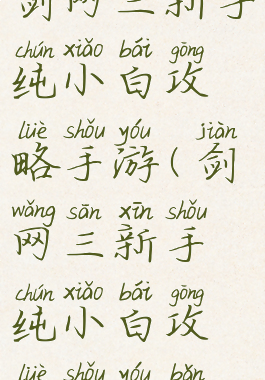 剑网三新手
chún xiǎo bái gōng
纯小白攻
lüè shǒu yóu jiàn
略手游(剑
wǎng sān xīn shǒu
网三新手
chún xiǎo bái gōng
纯小白攻
lüè shǒu yóu bǎn